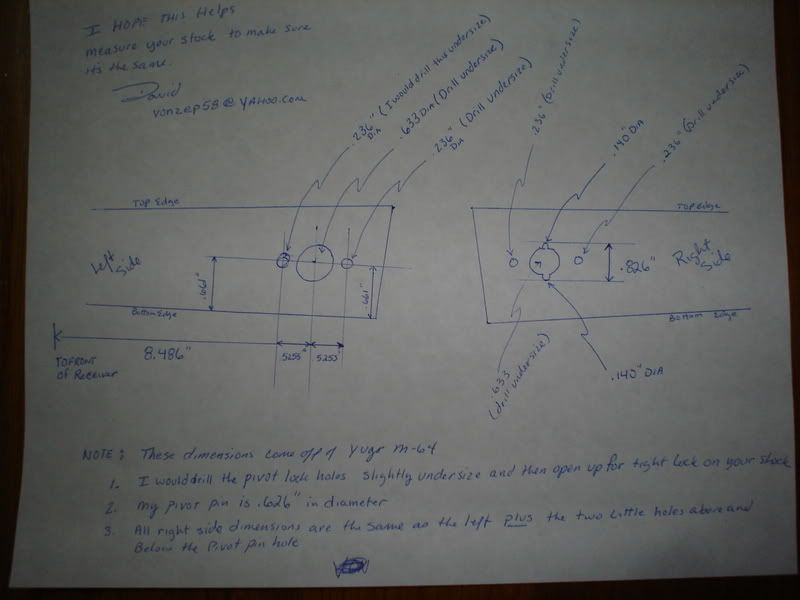 I HOPE THIS Helps
measure your stock to make sure
it's the same.
David
vonzep58@YAHOO.COM
.236" DIA (I would drill this undersize)
.633 DIA (Drill undersize)
.236" DIA (Drill undersize)
.236" (Drill undersize)
.140" DIA
.236" (Drill undersize)
Top Edge
Top Edge
Left side
.661"
.661"
.826"
Right side
Bottom Edge
Bottom Edge
TO FRONT
OF Receiver
8.486"
.5255"
.5253"
.633
(drill undersize)
.140" DIA
NOTE: These dimensions come off of Yugo M-64
1. I would drill the pivot lock holes slightly undersize and then open up for tight lock on your stock
2. My pivot pin is .626" in diameter
3. All right side dimensions are the same as the left plus the two little holes above and
Below the Pivot pin hole